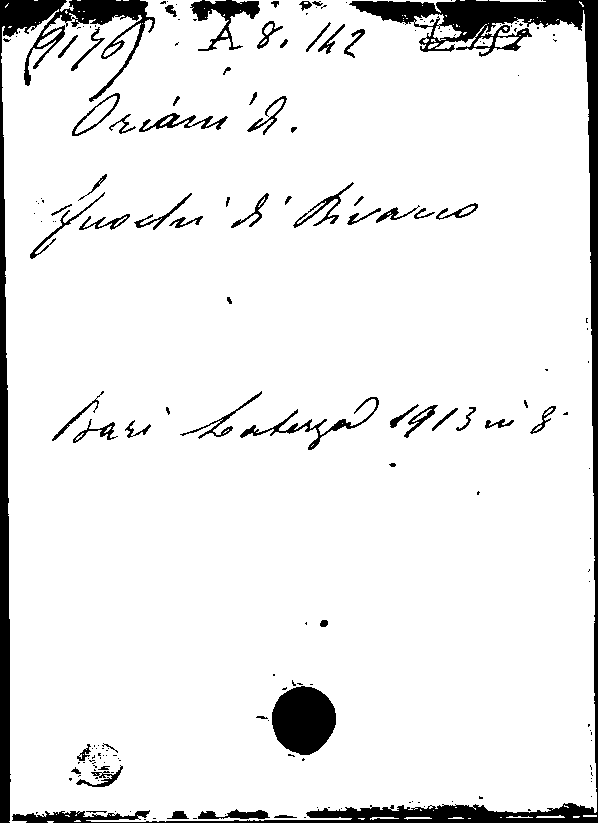 (9136) A 8. 142
Oriani A.
Fuochi di Bivacco
Bari Laterza 1913 in 8°